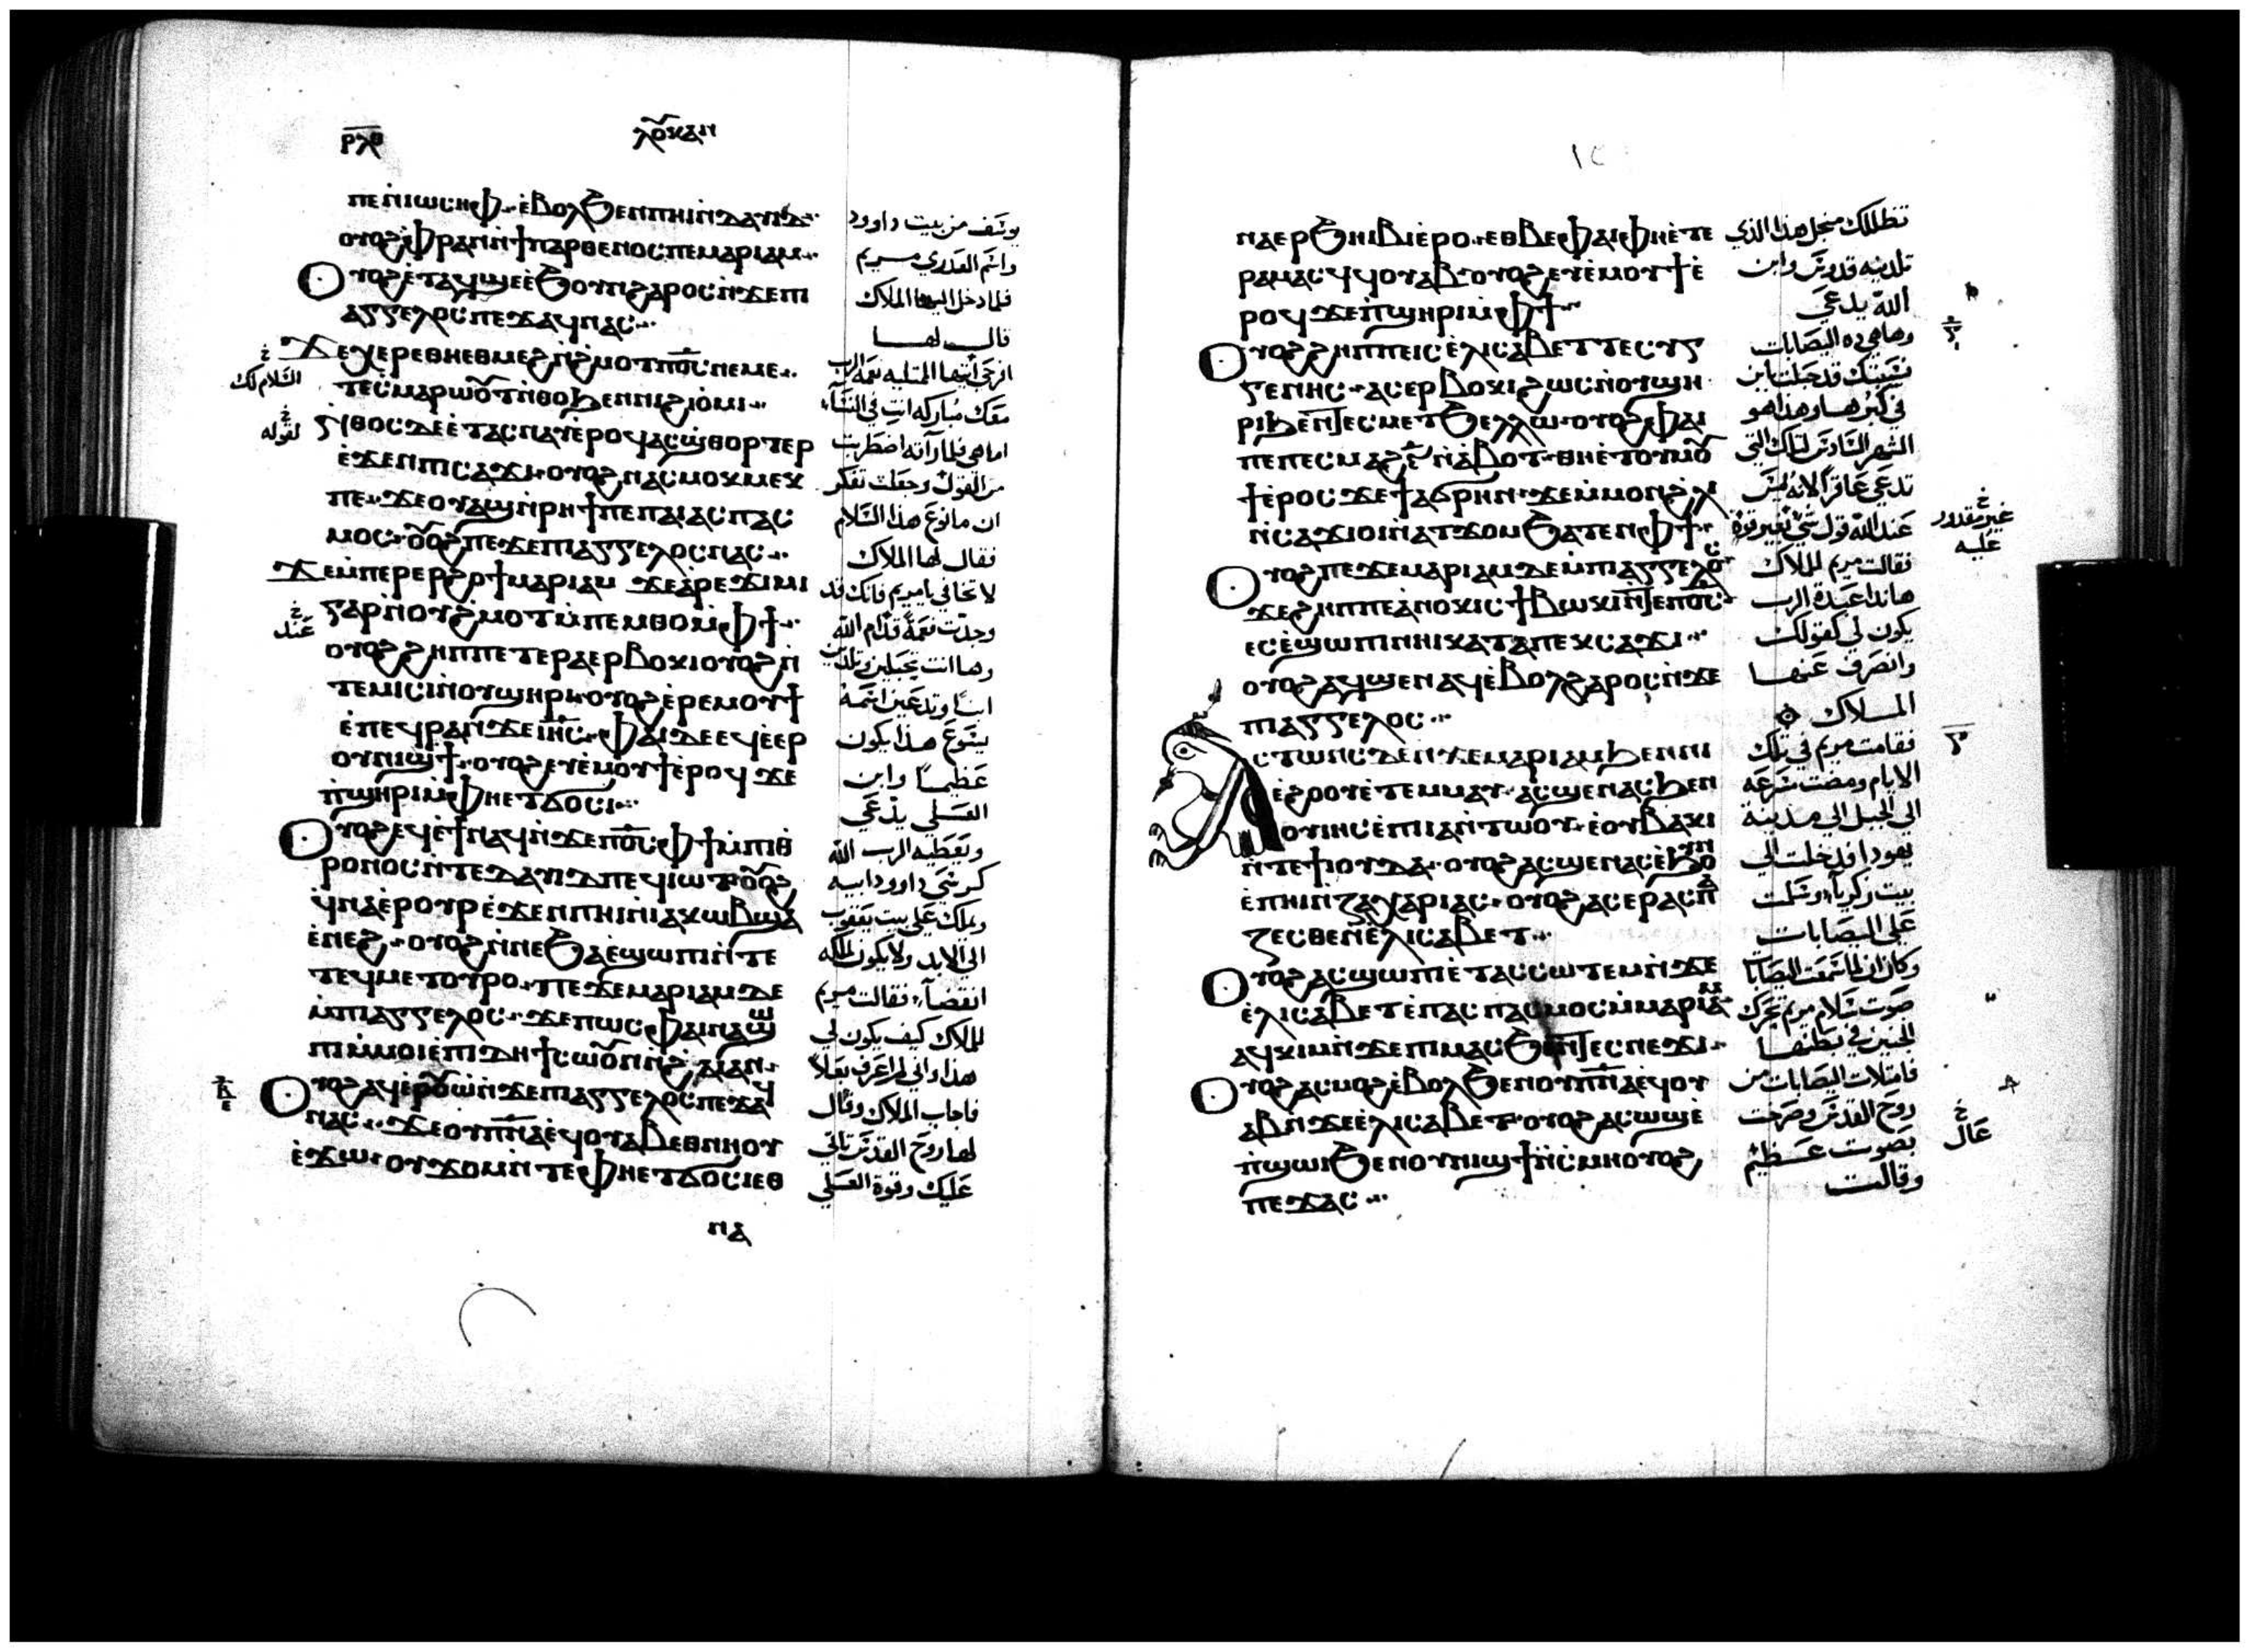 ⲣⲗⲑ
ⲗⲟⲩⲕⲁⲛ
ⲡⲉ ⲛ̀ⲓⲱⲥⲏⲫ ⲉ̀ⲃⲟⲗϧⲉⲛ ⲡⲏⲓ ⲛ̀ⲇⲁⲩⲓⲇ
ⲟⲩⲟϩ ⲫⲣⲁⲛ ⲛ̀ϯⲡⲁⲣⲑⲉⲛⲟⲥ ⲡⲉ ⲙⲁⲣⲓⲁⲙ
ⲟⲩⲟϩ ⲉ̀ⲧⲁϥϣⲉ ⲉ̀ϧⲟⲩⲛ ϩⲁⲣⲟⲥ ⲛ̀ϫⲉ ⲡⲓ
ⲁⲅⲅⲉⲗⲟⲥ ⲡⲉϫⲁϥ ⲛⲁⲥ
ϫⲉ ⲭⲉⲣⲉ ⲑⲏⲉⲑⲙⲉϩ ⲛ̀ϩⲙⲟⲧ ⲡ︦ⲟ︦ⲥ︦ ⲛⲉⲙⲉ
ⲧⲉⲥ̀ⲙⲁⲣⲱⲟⲩⲧ ⲛ̀ⲑⲟ ϧⲉⲛ ⲛⲓϩⲓⲟ̀ⲙⲓ
ⲛ̀ⲑⲟⲥ ⲇⲉ ⲉ̀ⲧⲁⲥⲛⲁⲩ ⲉ̀ⲣⲟϥ ⲁⲥϣ̀ⲑⲟⲣⲧⲉⲣ
ⲉ̀ϫⲉⲛ ⲡⲓⲥⲁϫⲓ ⲟⲩⲟϩ ⲛⲁⲥⲙⲟⲕⲙⲉⲕ
ⲡⲉ ϫⲉ ⲟⲩⲁϣ ⲛ̀ⲣⲏϯ ⲡⲉ ⲡⲁⲓⲁⲥⲡⲁⲥ
ⲙⲟⲥ ⲟⲩⲟϩ ⲡⲉϫⲉ ⲡⲓⲁⲅⲅⲉⲗⲟⲥ ⲛⲁⲥ
ϫⲉ ⲙ̀ⲡⲉⲣⲉⲣϩⲟϯ ⲙⲁⲣⲓⲁⲙ ϫⲉ ⲁ̀ⲣⲉϫⲓⲙⲓ
ⲅⲁⲣ ⲛ̀ⲟⲩϩ̀ⲙⲟⲧ ⲙ̀ⲡⲉⲙⲑⲟ ⲙ̀ⲫϯ
ⲟⲩⲟϩ ϩⲏⲡⲡⲉ ⲧⲉⲣⲁⲉⲣⲃⲟⲕⲓ ⲟⲩⲟϩ ⲛ̀
ⲧⲉⲙⲓⲥⲓ ⲛ̀ⲟⲩϣⲏⲣⲓ ⲟⲩⲟϩ ⲉ̀ⲣⲉⲙⲟⲩϯ
ⲉ̀ⲡⲉϥⲣⲁⲛ ϫⲉ ⲓ̅ⲏ̅ⲥ̅ ⲫⲁⲓ ⲇⲉ ⲉϥⲉ̀ⲉⲣ
ⲟⲩⲛⲓϣϯ ⲟⲩⲟϩ ⲉⲩⲉ̀ⲙⲟⲩϯ ⲉ̀ⲣⲟϥ ϫⲉ
ⲡ̀ϣⲏⲣⲓ ⲙ̀ⲫⲏⲉⲧϭⲟⲥⲓ
ⲟⲩⲟϩ ⲉϥⲉ̀ϯ ⲛⲁϥ ⲛ̀ϫⲉ ⲡ︦ⲟ︦ⲥ︦ ⲫϯ ⲙ̀ⲡⲓⲑ
ⲣⲟⲛⲟⲥ ⲛ̀ⲧⲉ ⲇⲁⲩⲓⲇ ⲡⲉϥⲓⲱⲧ ⲟⲩⲟϩ
ϥⲛⲁⲉⲣⲟⲩⲣⲟ ⲉ̀ϫⲉⲛ ⲡⲏⲓ ⲛ̀ⲓⲁⲕⲱⲃ ϣⲁ
ⲉ̀ⲛⲉϩ ⲟⲩⲟϩ ⲛ̀ⲛⲉϧⲁⲉ̀ ϣⲱⲡⲓ ⲛ̀ⲧⲉ
ⲧⲉϥⲙⲉⲧⲟⲩⲣⲟ ⲡⲉϫⲉ ⲙⲁⲣⲓⲁⲙ ⲇⲉ
ⲙ̀ⲡⲓⲁⲅⲅⲉⲗⲟⲥ ϫⲉ ⲡⲱⲥ ⲫⲁⲓ ⲛⲁϣⲱ
ⲡⲓ ⲙ̀ⲙⲟⲓ ⲉ̀ⲡⲓⲇⲏ ϯⲥⲱⲟⲩⲛ ⲛ̀ϩⲁⲓ ⲁⲛ
ⲟⲩⲟϩ ⲁϥⲉ̀ⲣⲟⲩⲱ̀ ⲛ̀ϫⲉ ⲡⲓⲁⲅⲅⲉⲗⲟⲥ ⲡⲉϫⲁϥ
ⲛⲁⲥ ϫⲉ ⲟⲩⲡ̅ⲛ̅ⲁ̅ ⲉϥⲟⲩⲁⲃ ⲉⲑⲛⲏⲟⲩ
ⲉ̀ϫⲱ ⲟⲩϫⲟⲙ ⲛ̀ⲧⲉ ⲫⲏⲉⲧϭⲟⲥⲓ ⲉⲑ
ⲛⲁ
يوسف من بيت داوود
واسم العدرى مريم
فلما دخل اليها الملاك
قال لها
افرحى أيتها الممتليه نعمة الرب
معك مباركه انتِ في النساء
اما هي فلما رآته اضطربت
من القول وجعلت تفكر
ان ما نوع هذا السلام
فقال لها الملاك
لا تخافي يا مريم فانك قد
وجدت نعمة قدام الله
وها انت تحبلين وتلدين
ابنًا وتدعين اسمه
يسوع هذا يكون
عظيمًا وابن
العلي يدعى
ويعطيه الرب الله
كرسي داوود ابيه
ويملك على بيت يعقوب
الى الابد ولا يكون لملكه
انقضآء فقالت مريم
للملاك كيف يكون لي
هذا واني لم اعرف بعلاً
فاجاب الملاك وقال
لها روح القدس تاتي
عليك وقوة العلي
السلام لك
لقوله
عند
ⲛⲁⲉⲣϧⲏⲓⲃⲓ ⲉ̀ⲣⲟ ⲉⲑⲃⲉ ⲫⲁⲓ ⲫⲏⲉ̀ⲧⲉ
ⲣⲁⲙⲁⲥϥ ϥⲟⲩⲁⲃ ⲟⲩⲟϩ ⲉⲩⲉ̀ⲙⲟⲩϯ ⲉ̀
ⲣⲟϥ ϫⲉ ⲡ̀ϣⲏⲣⲓ ⲙ̀ⲫϯ
ⲟⲩⲟϩ ϩⲏⲡⲡⲉ ⲓⲥ ⲉ̀ⲗⲓⲥⲁⲃⲉⲧ ⲧⲉⲥⲩⲅ
ⲅⲉⲛⲏⲥ ⲁⲥⲉⲣⲃⲟⲕⲓ ϩⲱⲥ ⲛ̀ⲟⲩϣⲏ
ⲣⲓ ϧⲉⲛ ⲧⲉⲥⲙⲉⲧϧⲉⲗⲗⲱ ⲟⲩⲟϩ ⲫⲁⲓ
ⲡⲉ ⲡⲉⲥⲙⲁϩ ⲋ̅ ⲛ̀ⲁ̀ⲃⲟⲧ ⲑⲏⲉ̀ⲧⲟⲩⲙⲟⲩ
ϯ ⲉ̀ⲣⲟⲥ ϫⲉ ϯⲁϭⲣⲏⲛ ϫⲉ ⲙ̀ⲙⲟⲛ ϩⲗⲓ
ⲛ̀ⲥⲁϫⲓ ⲟⲓ ⲛ̀ⲁⲧϫⲟⲙ ϧⲁⲧⲉⲛ ⲫϯ
ⲟⲩⲟϩ ⲡⲉϫⲉ ⲙⲁⲣⲓⲁⲙ ⲇⲉ ⲙ̀ⲡⲓⲁⲅⲅⲉⲗⲟⲥ
ϫⲉ ϩⲏⲡⲡⲉ ⲁⲛⲟⲕ ⲓⲥ ϯⲃⲱⲕⲓ ⲛ̀ⲧⲉ ⲡ︦ⲟ︦ⲥ︦
ⲉⲥⲉ̀ϣⲱⲡⲓ ⲛⲏⲓ ⲕⲁⲧⲁ ⲡⲉⲕⲥⲁϫⲓ
ⲟⲩⲟϩ ⲁϥϣⲉ ⲛⲁϥ ⲉ̀ⲃⲟⲗ ϩⲁⲣⲟⲥ ⲛ̀ϫⲉ
ⲡⲓⲁⲅⲅⲉⲗⲟⲥ
ⲁⲥⲧⲱⲛⲥ ⲇⲉ ⲛ̀ϫⲉ ⲙⲁⲣⲓⲁⲙ ϧⲉⲛ ⲛⲓ
ⲉ̀ϩⲟⲟⲩ ⲉ̀ⲧⲉⲙⲙⲁⲩ ⲁⲥϣⲉ ⲛⲁⲥ ϧⲉⲛ
ⲟⲩⲓⲏⲥ ⲉ̀ⲡⲓⲁⲛⲧⲱⲟⲩ ⲉ̀ⲟⲩⲃⲁⲕⲓ
ⲛ̀ⲧⲉ ϯⲓⲟⲩⲇⲁ ⲟⲩⲟϩ ⲁⲥϣⲉ ⲛⲁⲥ ⲉ̀ϧⲟⲩⲛ
ⲉ̀ⲡⲏⲓ ⲛ̀ⲍⲁⲭⲁⲣⲓⲁⲥ ⲟⲩⲟϩ ⲁⲥⲉⲣⲁⲥⲡⲁ
ⲍⲉⲥⲑⲉ ⲛ̀ⲉ̀ⲗⲓⲥⲁⲃⲉⲧ
ⲟⲩⲟϩ ⲁⲥϣⲱⲡⲓ ⲉ̀ⲧⲁⲥⲥⲱⲧⲉⲙ ⲛ̀ϫⲉ
ⲉ̀ⲗⲓⲥⲁⲃⲉⲧ ⲉ̀ⲡⲁⲥⲡⲁⲥⲙⲟⲥ ⲙ̀ⲙⲁⲣⲓⲁⲙ
ⲁϥⲕⲓⲙ ⲛ̀ϫⲉ ⲡⲓⲙⲁⲥ ϧⲉⲛ ⲧⲉⲥⲛⲉϫⲓ
ⲟⲩⲟϩ ⲁⲥⲙⲟϩ ⲉ̀ⲃⲟⲗϧⲉⲛ ⲟⲩⲡ̅ⲛ̅ⲁ̅ ⲉϥⲟⲩ
ⲁⲃ ⲛ̀ϫⲉ ⲉ̀ⲗⲓⲥⲁⲃⲉⲧ ⲟⲩⲟϩ ⲁⲥⲱϣ ⲉ̀
ⲡ̀ϣⲱⲓ ϧⲉⲛ ⲟⲩⲛⲓϣϯ ⲛ̀ⲥ̀ⲙⲏ ⲟⲩⲟϩ
ⲡⲉϫⲁⲥ
تظللك من اجل هذا الذي
تلدينه قدوس وابن
الله يدعى
وها هي ده اليصابات
نسيبتك قد حبلت بابن
في كبرها وهذا هو
الشهر السادس لتلك التي
تدعى عاقرًا لانه ليس
عند الله قول شي بغير قوة
فقالت مريم للملاك
هانذا عبدة الرب
يكون لي كقولك
وانصرف عنها
الملاك
فقامت مريم في تلك
الايام ومضت بسرعة
الى الجبل الى مدينة
يهودا فدخلت الى
بيت زكريآء وسلمت
على اليصابات
وكان لما سمعت اليصابات
صوت سلام مريم تحرك
الجنين في بطنها
فامتلات اليصابات من
روح القدس وصرخت
بصوت عظيم
وقالت
غير مقدور
عليه
عال